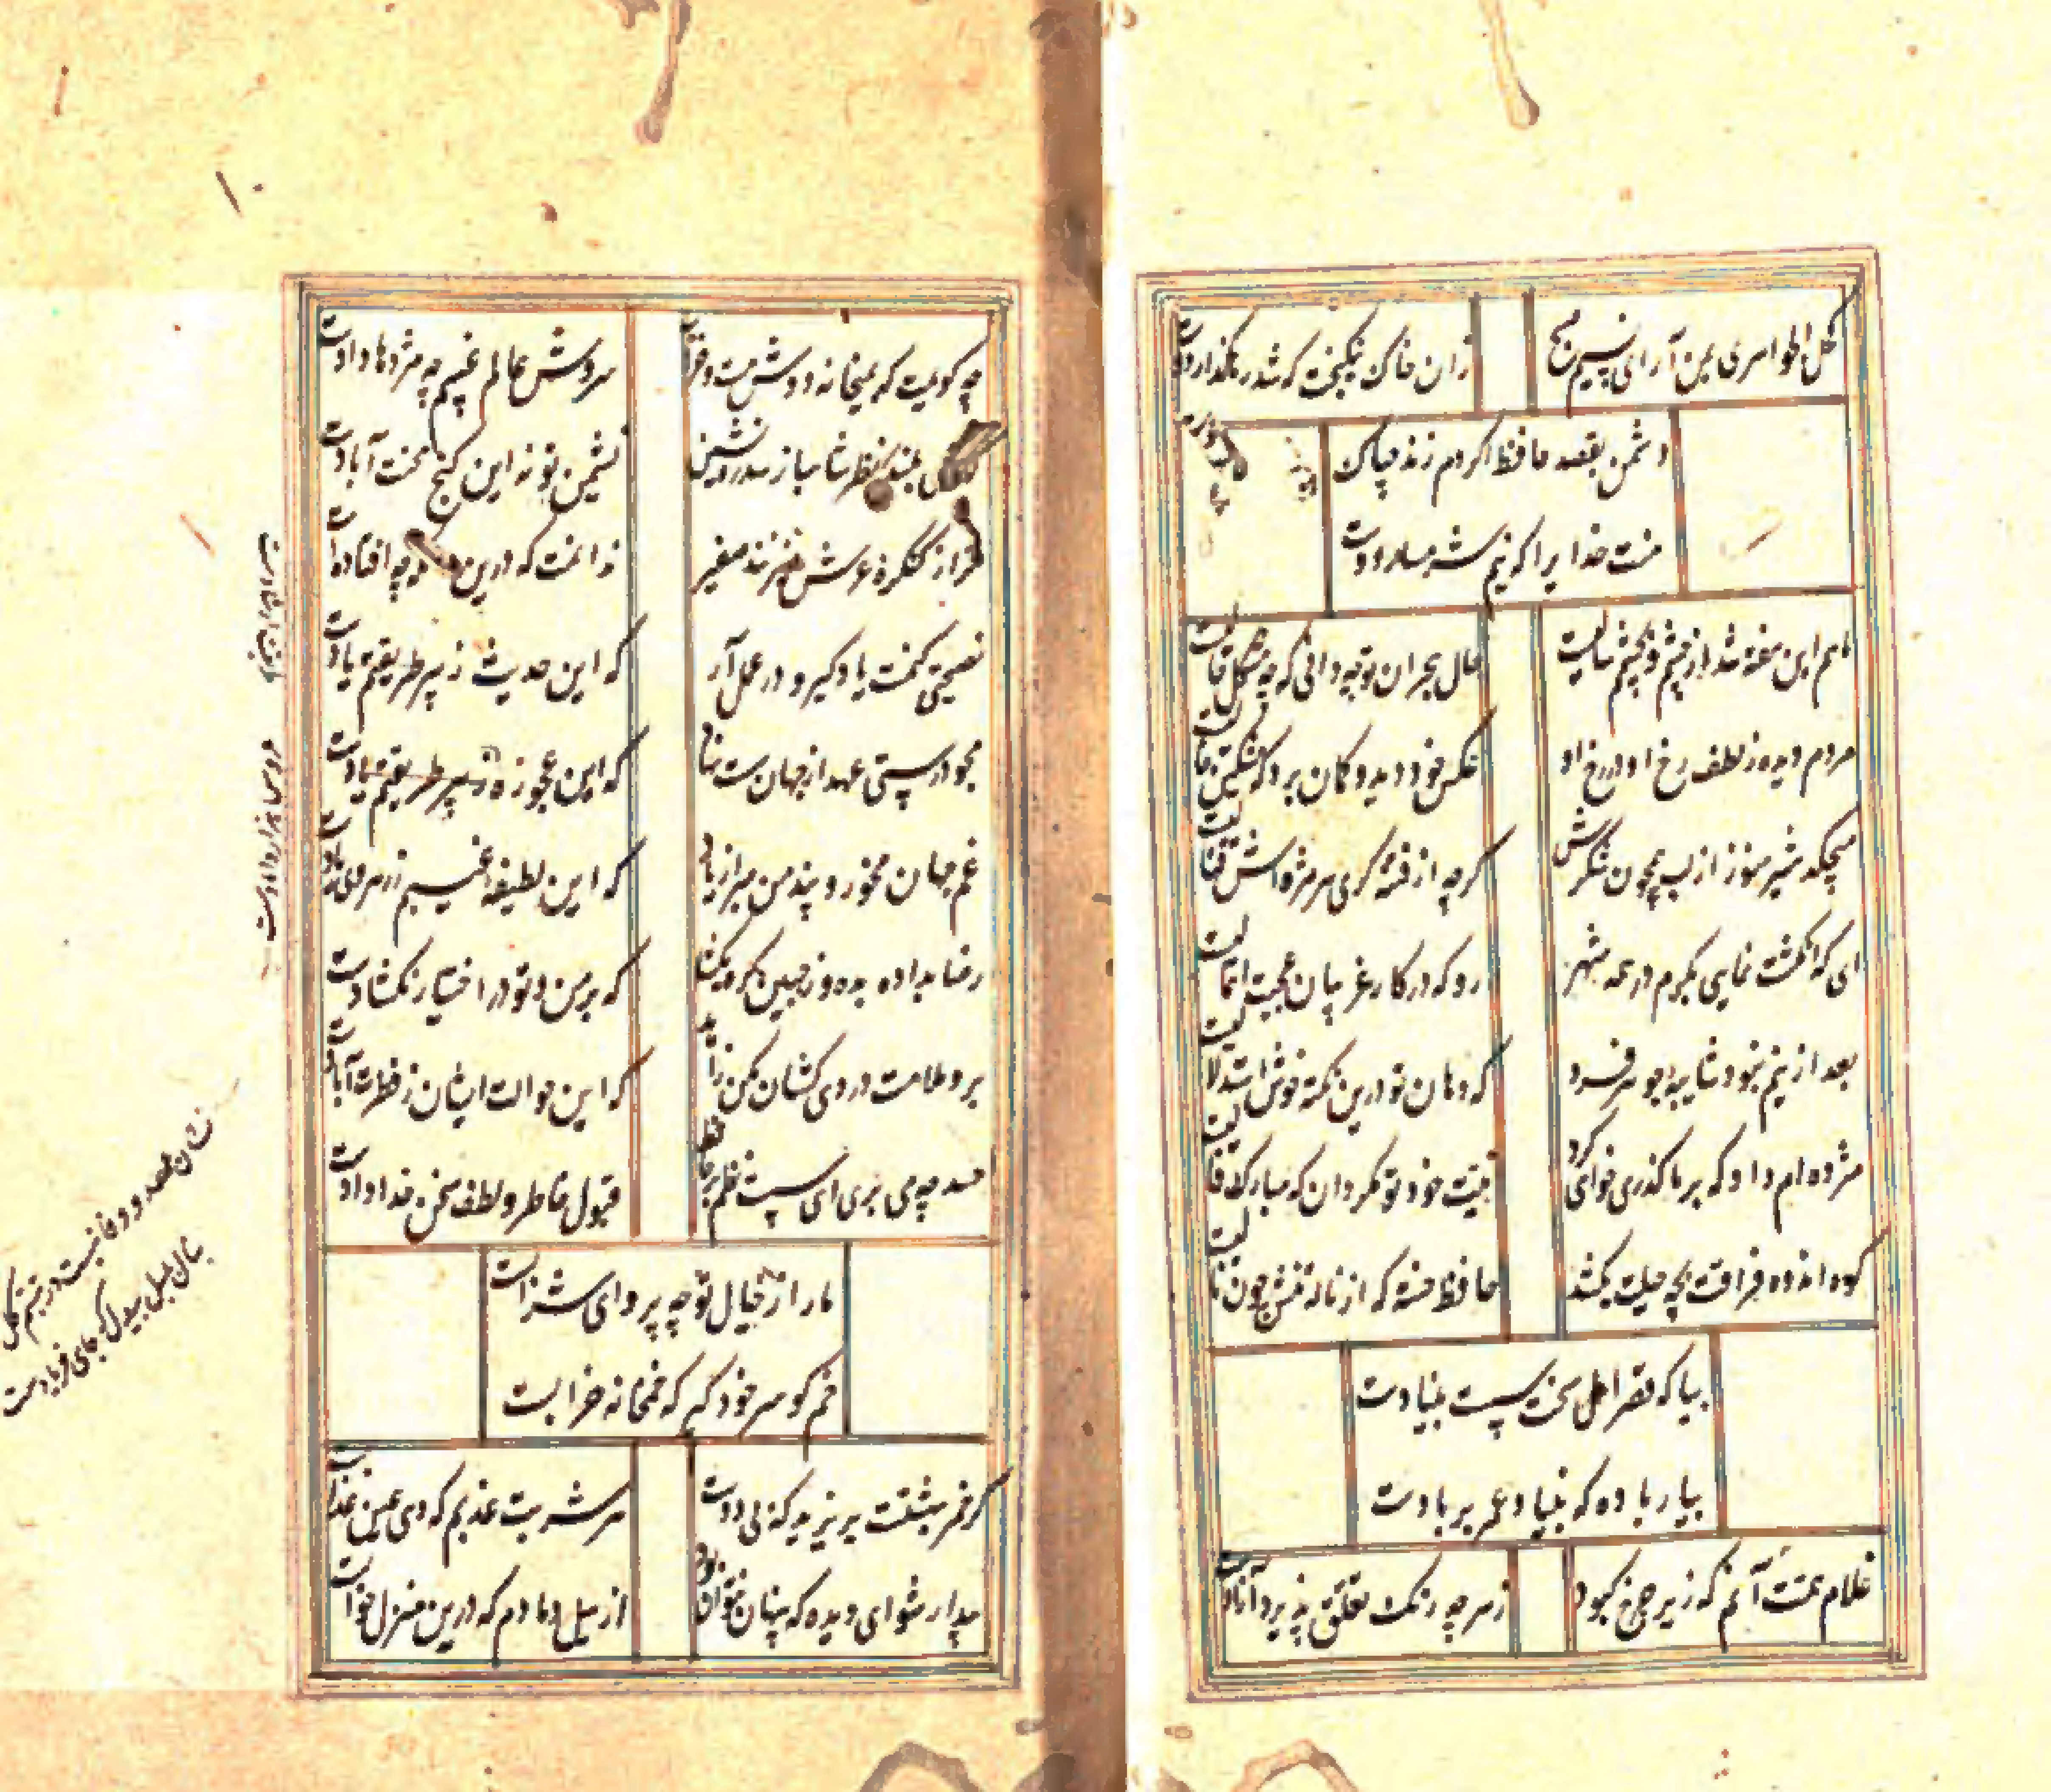 کحل الجواهری بمن آر ای نسیم صبح
زان خاک نیکبخت که شد رهگذار دوست
دشمن بقصد حافظ اگر دم زند چه باک
منت خدایرا که نیم شرمسار دوست
ماهم این هفته شد از چشم و بچشمم سالیست
حال هجران تو چه دانی که چه مشکل حالیست
مردم دیده ز لطف رخ او در رخ او
عکس خود دید و گمان برد که مشکین خالیست
میچکد شیر هنوز از لب همچون شکرش
گرچه از فتنه گری هر مژه اش قتالیست
ای که انگشت نمایی بکرم در همه شهر
وه که در کار غریبان عجبت اهمالیست
بعد ازینم نبود شایبه در جوهر فرد
که دهان تو درین نکته خوش استدلالیست
مژده ام داد که بر ما گذری خواهی کرد
نیت خود تو مگردان که مبارک فالیست
کوه اندوه فراقت بچه حیلت بکشد
حافظ خسته که از ناله تنش چون نالیست
بیا که قصر امل سخت سست بنیادست
بیار باده که بنیاد عمر بر بادست
غلام همت آنم که زیر چرخ کبود
زهر چه رنگ تعلق پذیرد آزادست
چه گویمت که بمیخانه دوش مست و خراب
سروش عالم غیبم چه مژدها دادست
بلند نظر شاهباز سدره نشین
نشیمن تو نه این کنج محنت آبادست
ترا ز کنگره عرش میزنند صفیر
ندانمت که درین چه افتادست
نصیحتی کنمت یاد گیر و در عمل آر
که این حدیث ز پیر طریقتم یادست
مجو درستی عهد از جهان سست نهاد
که این عجوزه ز پیر طریقتم یادست
غم جهان مخور و پند من مبر از یاد
که این لطیفه غیبم ز رهروی یادست
رضا بداده بده وز جبین گره بگشا
که بر من و تو در اختیار نگشادست
برو ملامت دردی کشان مکن زاهد
که این حوالت ایشان ز فطرت آبادست
حسد چه می بری ای سست نظم بر حافظ
قبول خاطر و لطف سخن خدادادست
ما را ز خیال تو چه پروای شرابست
خم گو سر خود گیر که خمخانه خرابست
گر خمر بهشتست بریزید که بی دوست
هر شربت عذبم که دهی عین عذابست
بیدار شو ای دیده که پنهان نتوان بود
از سیل دمادم که درین منزل خوابست
عروس هزار دامادست
نشان عهد و وفا نیست در تبسم گل
بنال بلبل بیدل که جای فریادست